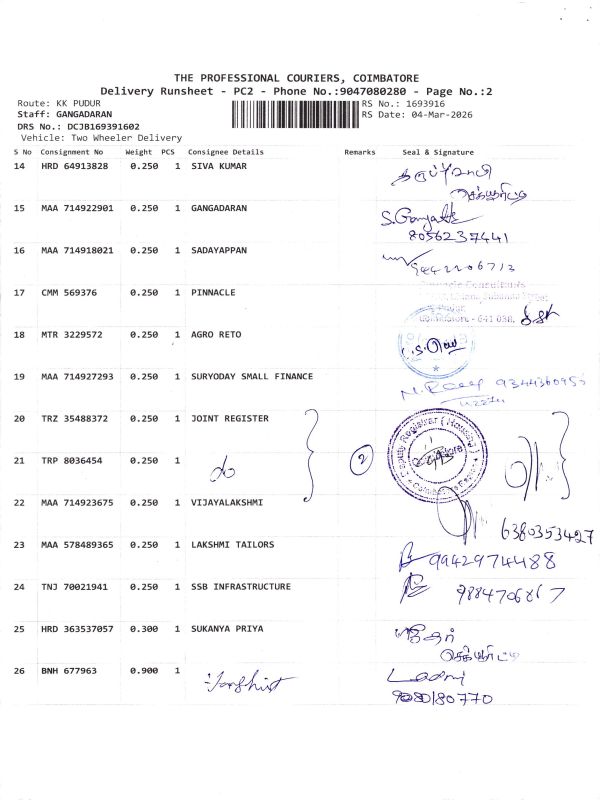 THE PROFESSIONAL COURIERS, COIMBATORE
Delivery Runsheet - PC2 - Phone No.:9047080280 - Page No.:2
Route: KK PUDUR
RS No.: 1693916
Staff: GANGADARAN
RS Date: 04-Mar-2026
DRS No.: DCJB169391602
Vehicle: Two Wheeler Delivery
S No Consignment No Weight PCS Consignee Details Remarks Seal & Signature
14 HRD 64913828 0.250 1 SIVA KUMAR
15 MAA 714922901 0.250 1 GANGADARAN
8056237441
16 MAA 714918021 0.250 1 SADAYAPPAN
9442206713
17 CMM 569376 0.250 1 PINNACLE
641 038.
18 MTR 3229572 0.250 1 AGRO RETO
19 MAA 714927293 0.250 1 SURYODAY SMALL FINANCE
20 TRZ 35488372 0.250 1 JOINT REGISTER
21 TRP 8036454 0.250 1 do 2
22 MAA 714923675 0.250 1 VIJAYALAKSHMI
6380353427
23 MAA 578489365 0.250 1 LAKSHMI TAILORS
9942974488
24 TNJ 70021941 0.250 1 SSB INFRASTRUCTURE
9884706867
25 HRD 363537057 0.300 1 SUKANYA PRIYA
26 BNH 677963 0.900 1
9080180770